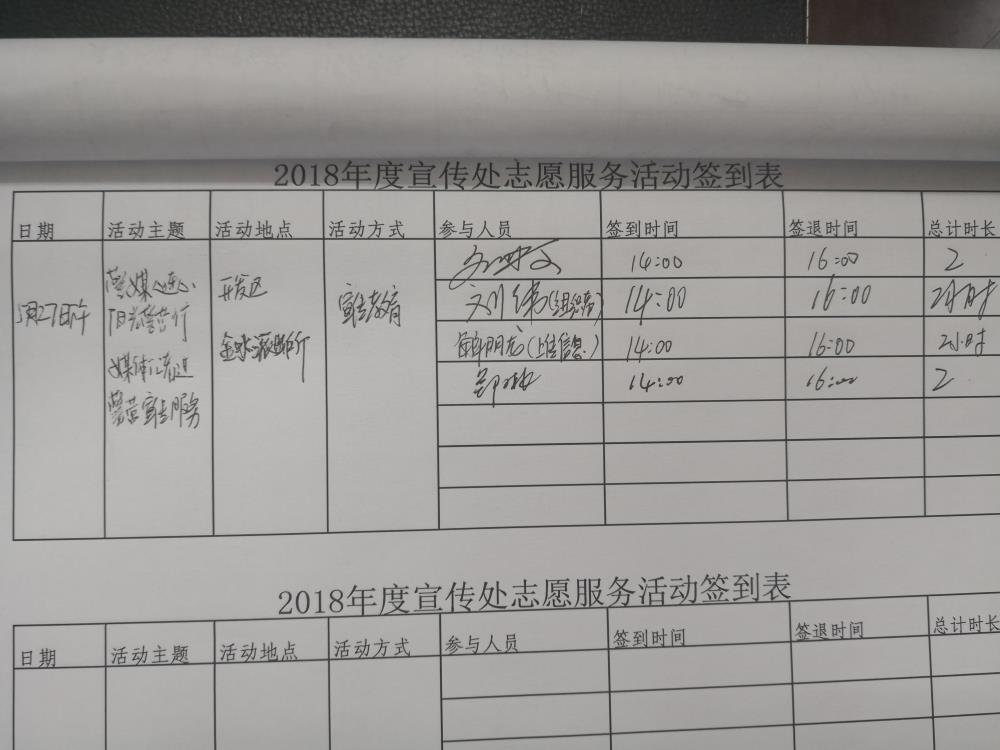 2018年度宣传处志愿服务活动签到表
日期 活动主题 活动地点 活动方式 参与人员 签到时间 签退时间 总计时长
14:00 16:00 2
警媒心连心 开发区
5月27日下午 宣传教育 14:00 16:00 2小时
阳光警营行
金水派出所 14:00 16:00 2小时
媒体记者进 14:00 16:00 2
警营宣传服务
2018年度宣传处志愿服务活动签到表
日期 活动主题 活动地点 活动方式 参与人员 签到时间 签退时间 总计时长